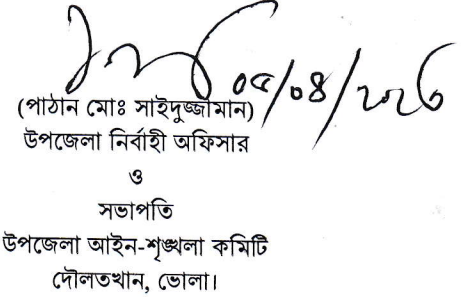 ০৫/০৪/২০২৩
(পাঠান মোঃ সাইদুজ্জামান)
উপজেলা নির্বাহী অফিসার
ও
সভাপতি
উপজেলা আইন-শৃঙ্খলা কমিটি
দৌলতখান, ভোলা।